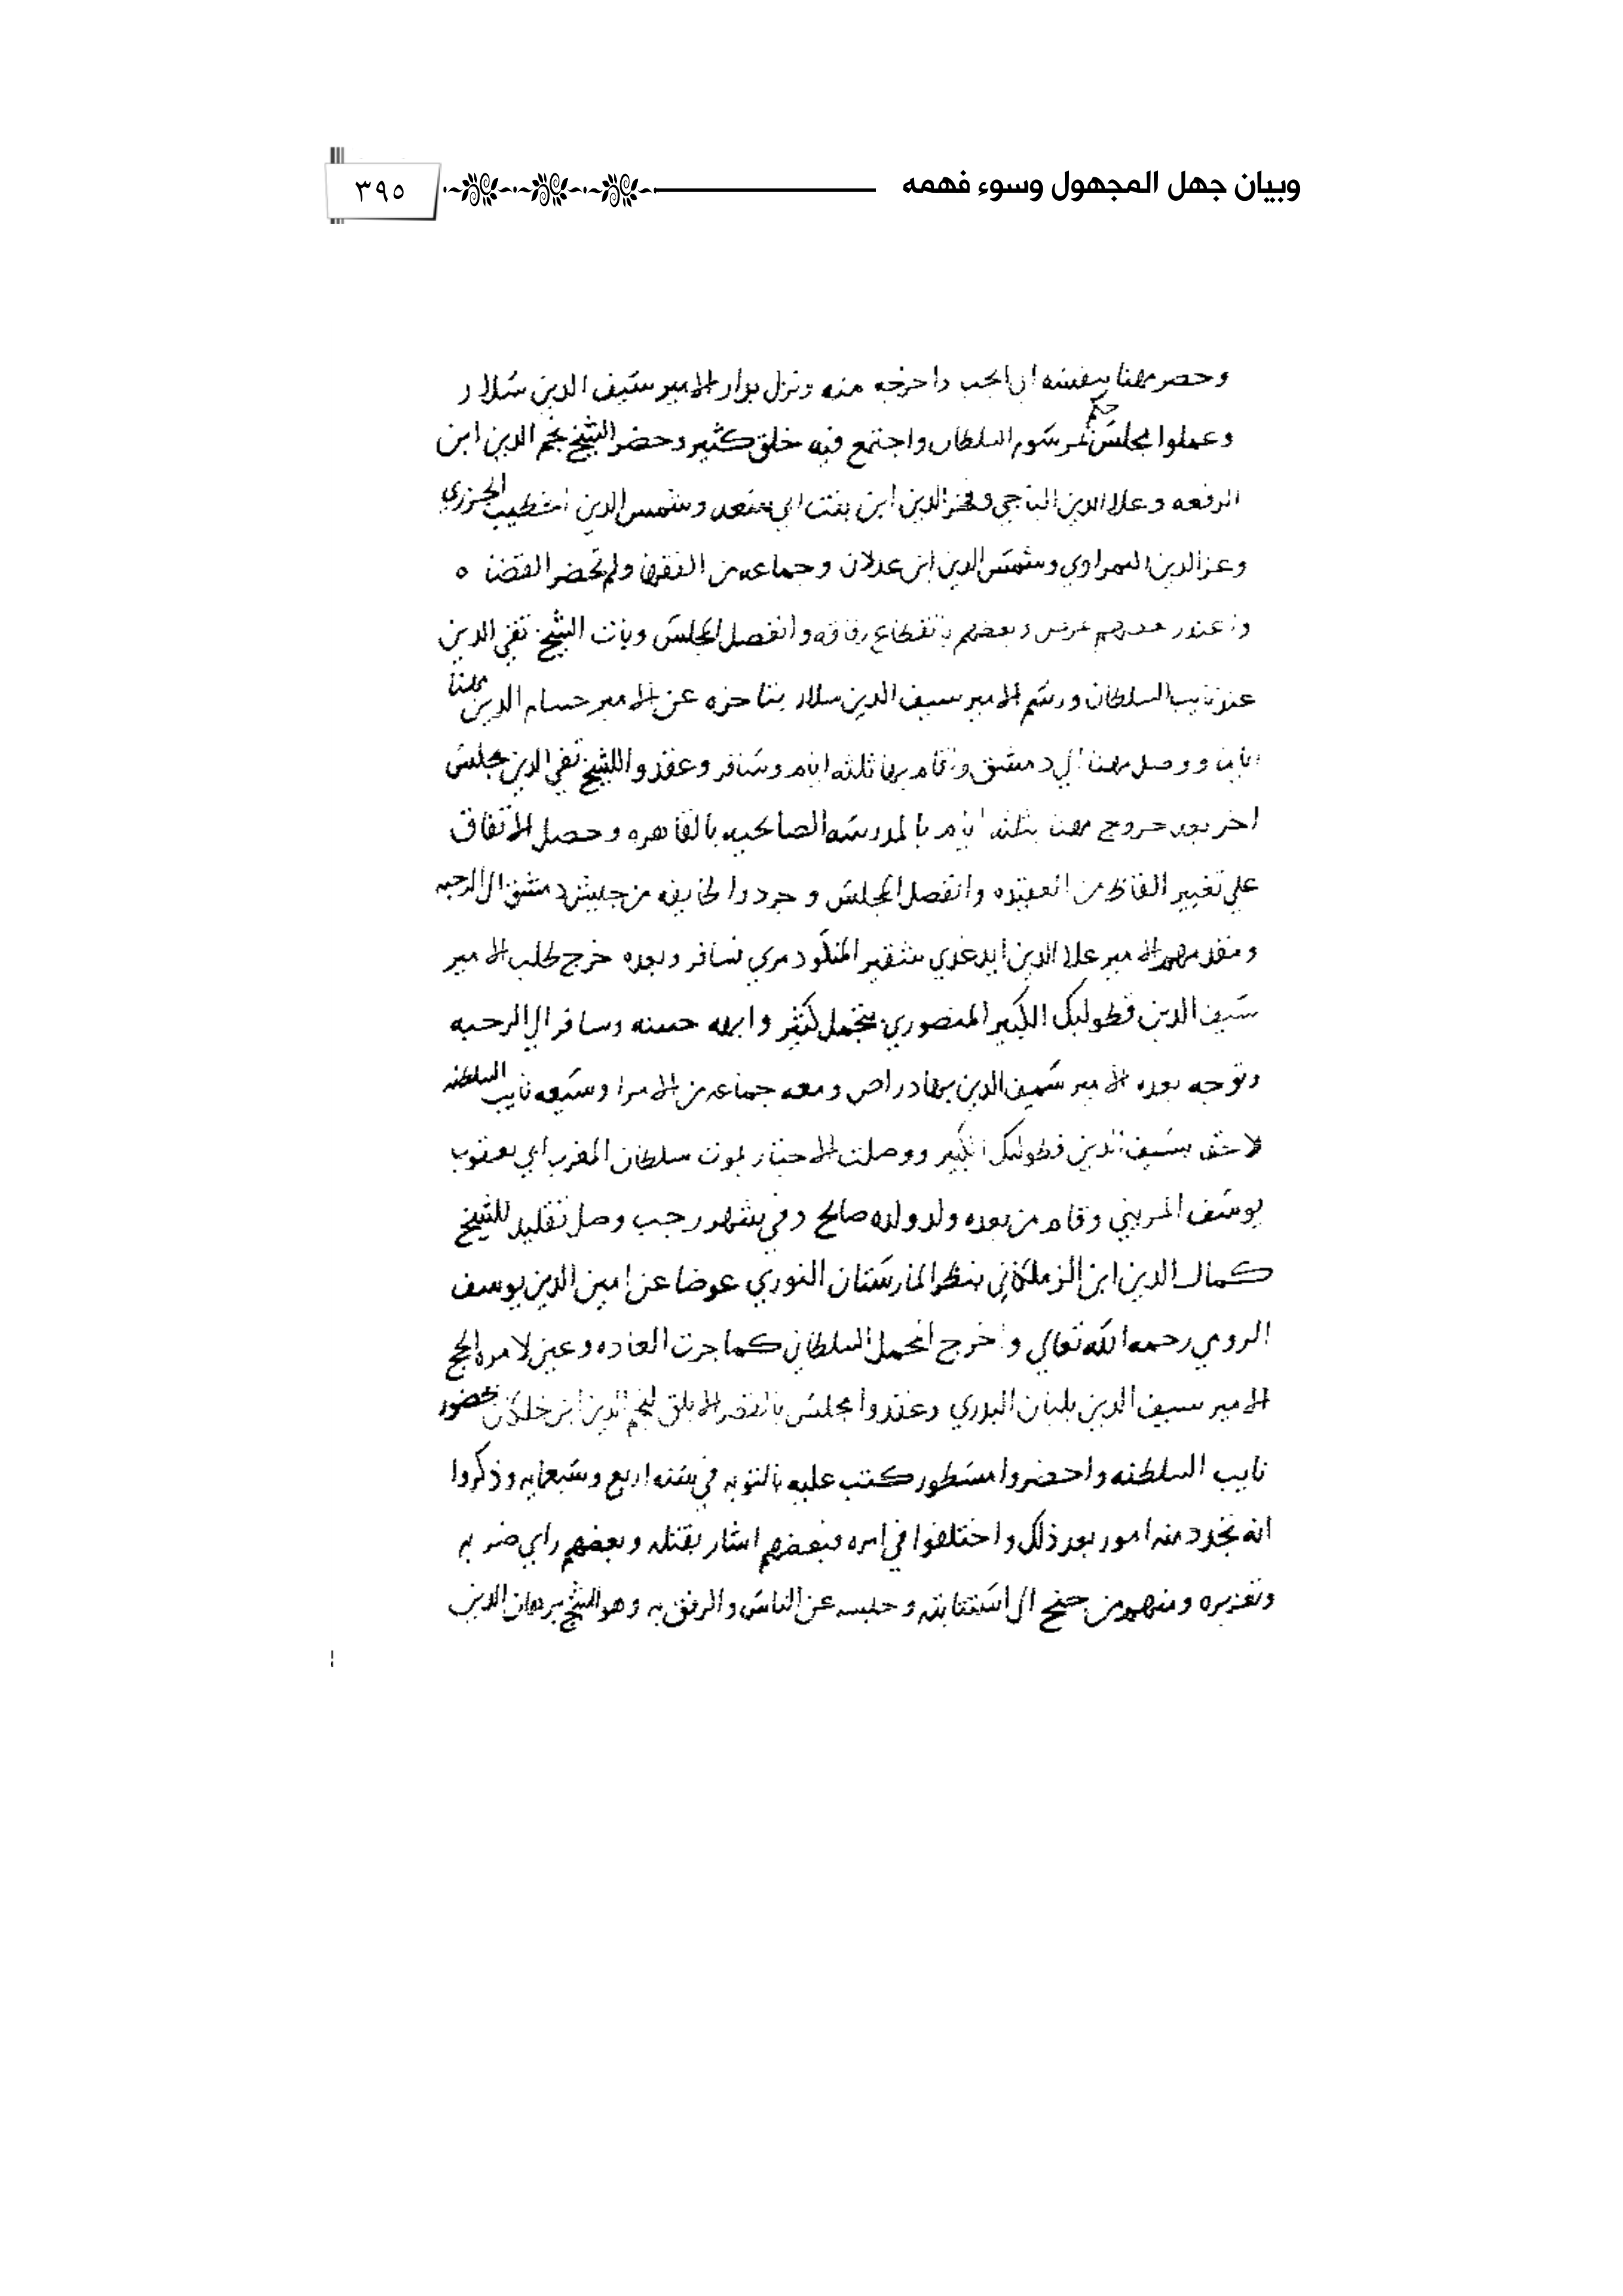 وبيان جهل المجهول وسوء فهمه
٣٩٥
وحضر مهنا بنفسه الى الجب واخرجه منه ونزل بدار الامير سيف الدين سلار
وعملوا مجلس حكم بمرسوم السلطان واجتمع فيه خلق كثير وحضر الشيخ نجم الدين ابن
الرفعه وعلا الدين الباجي وفخر الدين ابن بنت ابي سعد وشمس الدين الخطيب الجزري
وعز الدين النمراوي وشمس الدين ابن عدلان وجماعه من الفقها ولم تحضر القضا ه
واعتذر بعضهم بمرض وبعضهم بانقطاع رفاقه وانفصل المجلس وبات الشيخ تقي الدين
عند نايب السلطان ورسم الامير سيف الدين سلار بتاخره عن الامير حسام الدين مهنا
اياما ووصل مهنا الي دمشق واقام بها ثلثه ايام وسافر وعقدوا للشيخ تقي الدين مجلس
اخر بعد خروج مهنا بثلثه ايام بالمدرسه الصالحيه بالقاهره وحصل الاتفاق
علي تغيير الفاظ من العقيده وانفصل المجلس وجردوا طايفه من جيش دمشق الى الرحبه
ومقدمهم الامير علا الدين ايدغدي شقير المنكودمري فسافر وبعده خرج لحلب الامير
سيف الدين قطولبك الكبير المنصوري بتجمل كثير وابهه حسنه وسافر الى الرحبه
وتوجه بعده الامير سيف الدين بهادراص ومعه جماعه من الامرا وشيعه نايب السلطنه
لاحقا بسيف الدين قطولبك الكبير ووصلت الاخبار بموت سلطان المغرب ابي يعقوب
يوسف المريني وقام من بعده ولد ولده صالح وفي شهر رجب وصل تقليد للشيخ
كمال الدين ابن الزملكاني بنظر المارستان النوري عوضا عن امين الدين يوسف
الرومي رحمه الله تعالي واخرج المحمل السلطاني كما جرت العاده وعين لامره الحج
الامير سيف الدين بلبان البدري وعقدوا مجلس بالقصر الابلق لنجم الدين ابن خلكان بحضور
نايب السلطنه واحضروا مسطور كتب عليه بالتوبه في سنه اربع وسبعمايه وذكروا
انه تجدد منه امور بعد ذلك واختلفوا في امره فبعضهم اشار بقتله وبعضهم راي ضربه
وتعزيره ومنهم من جنح الى استتابته وحبسه عن الناس والرفق به وهو الشيخ برهان الدين